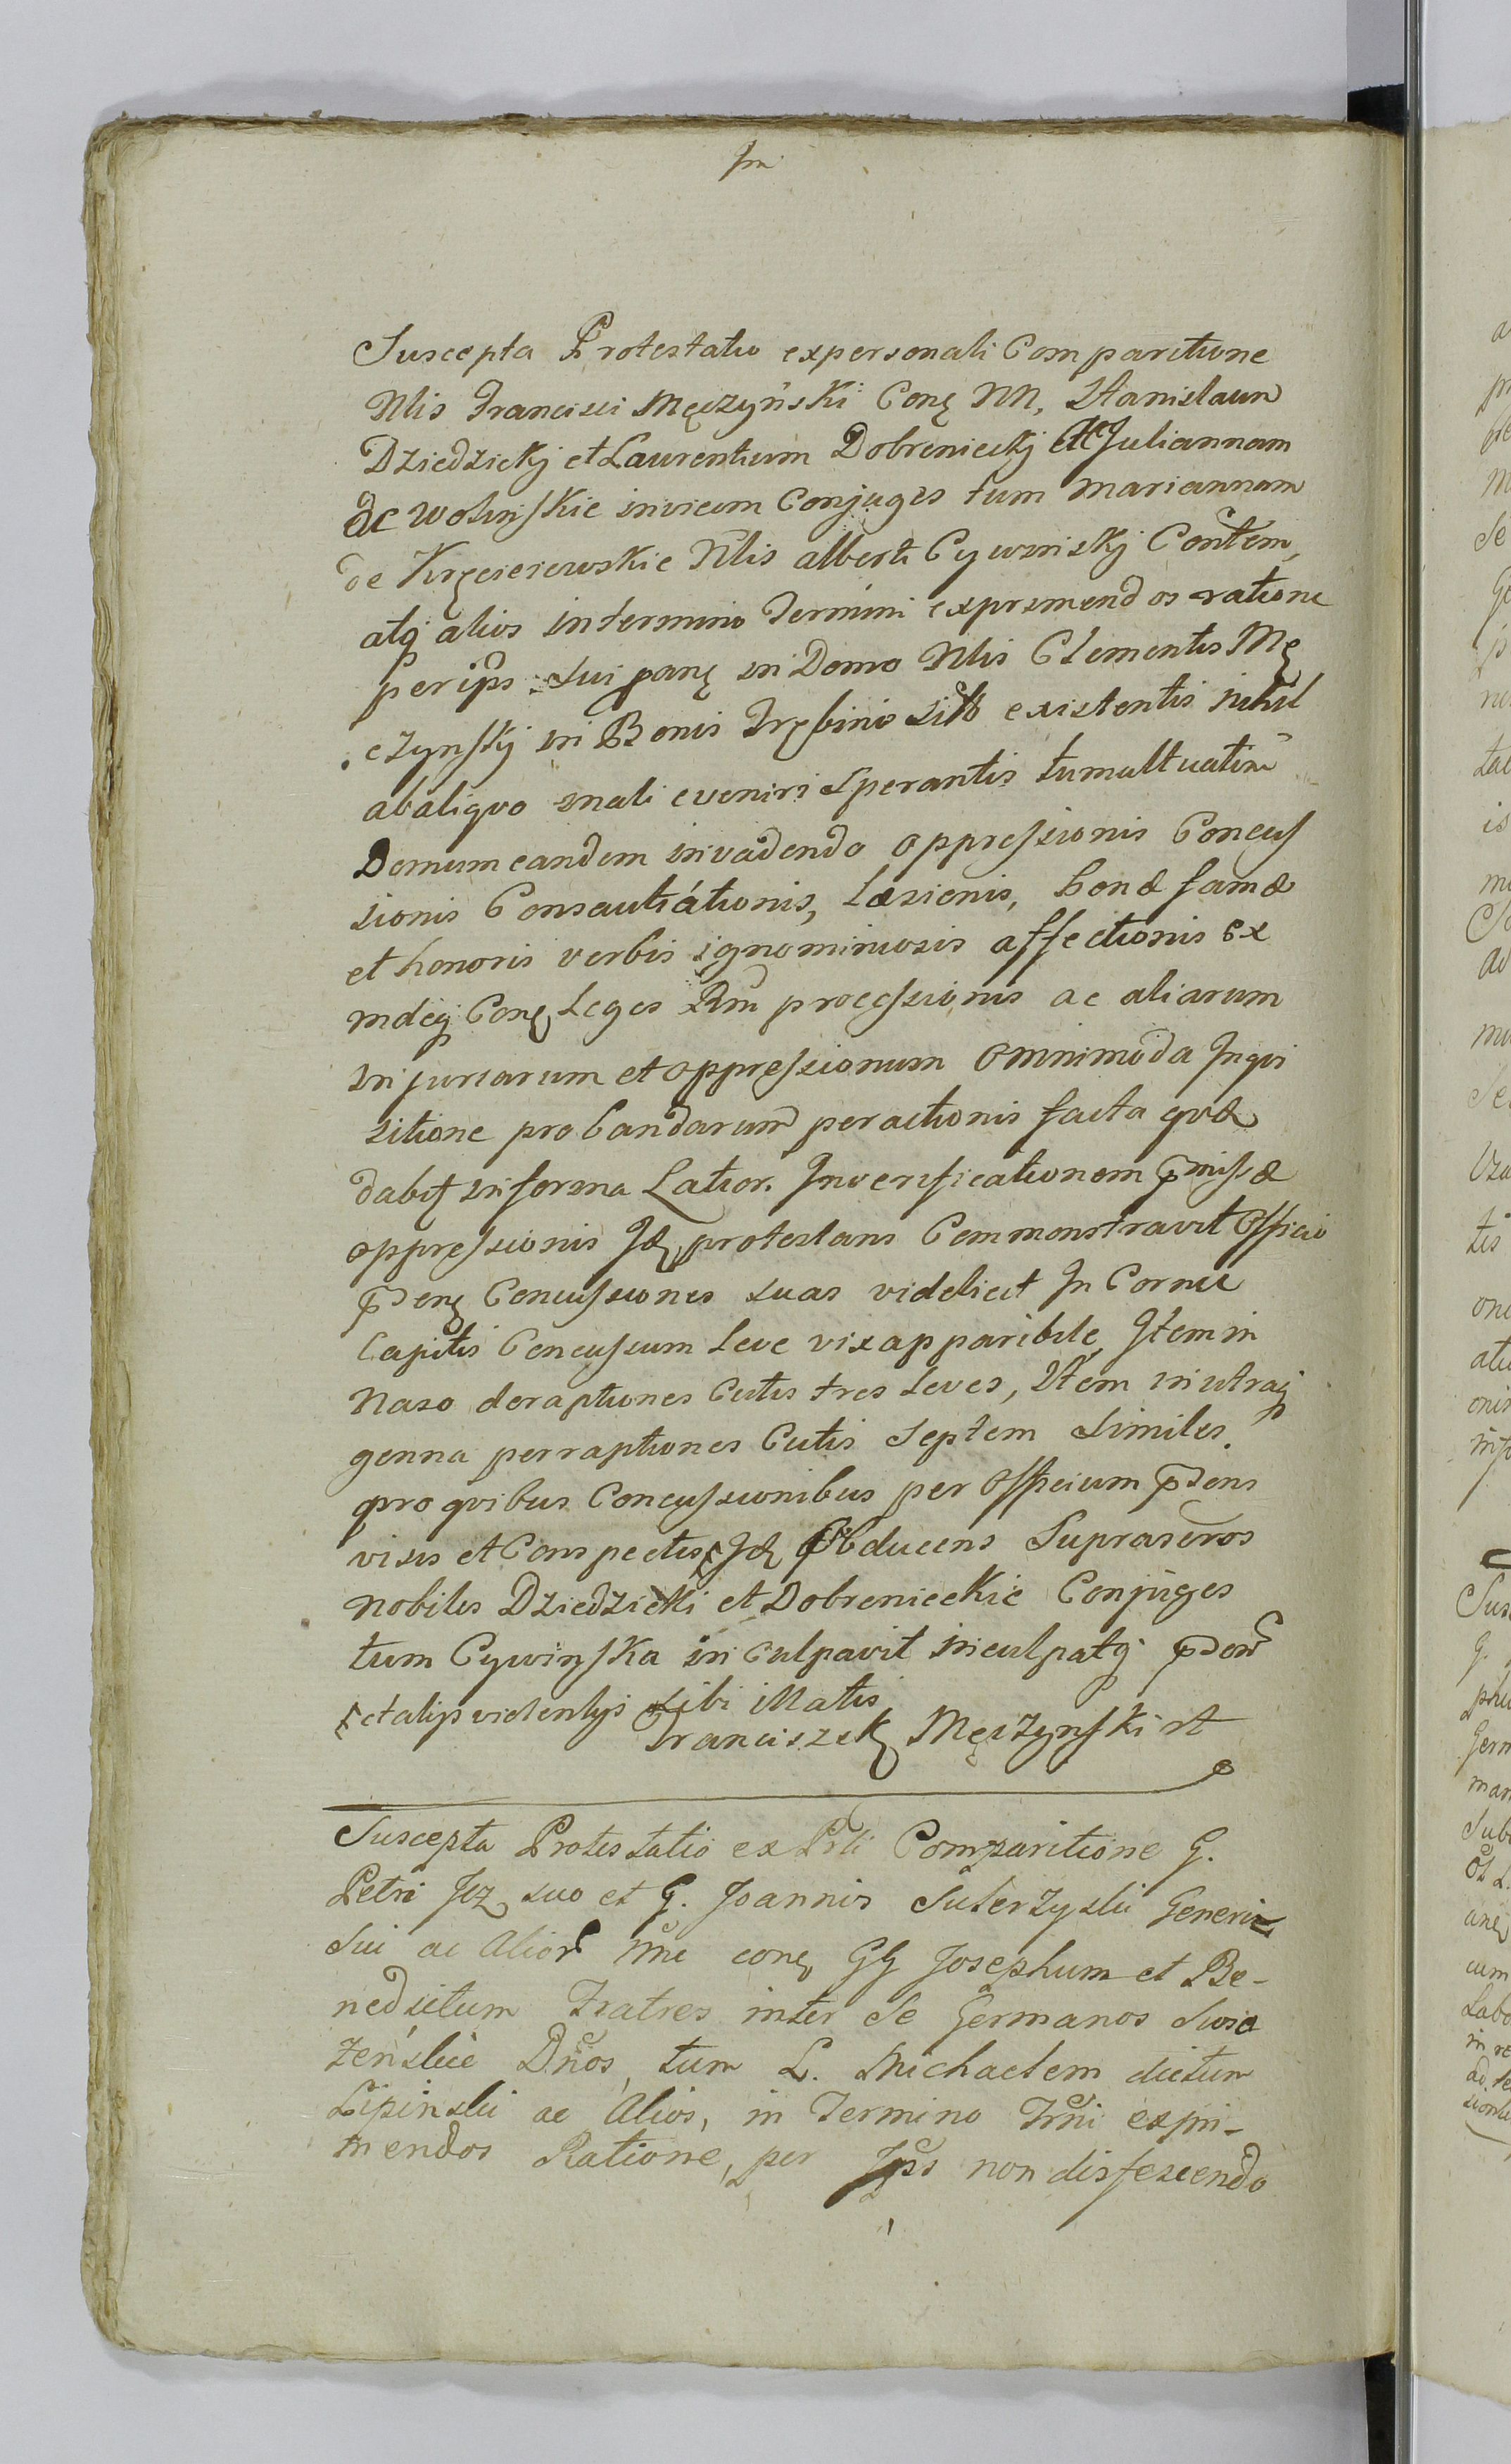 Suscepta Protestatio expersonali Comparitione
Nlis Francisci Męczyński Conę NN, Stanislaum
Dziedzickj et Laurentium Dobrenieckj et Juliannam
de Wolinskie invicem Conjuges tum Mariannam
de Kręcieiewskie Nlis alberti Cywinskj Contem,
atq alios in termino Termini exprimendos ratione
per ips: sui panę in Domo Nlis Clementis Mę
czynskj in Bonis Trębino sitto existentis nihil
abaliqvo mali eveniri Sperantis tumultuatim
Domum eandem invadendo oppressionis Concus
sionis Consautiationis, Læzionis, bonæ famæ
et honoris verbis ignominiosis affectionis ex
indeq Conę Leges Rni processionis ac aliarum
injuriarum et oppressionum Omnimoda Inqvi
sitione probandarum peractionis facta qvæ
dabit in forma Latior. In verificationem pmissæ
oppressionis Idę protestans Commonstravit Officio
pdenę Concussiones suas videlicet In Cornu
Capitis Concussum Leve vix apparibile, Item in
Naso deraptiones Cutis tres Leves, Item in utraq
genna perraptiones Cutis Septem Similes.
pro qvibus Concussionibus per Officium pdens
visis et Conspectis Idę Obducens Suprascros
Nobiles Dziedzicki et Dobrenieckie Conjuges
tum Cywinska inculpavit inculpatq pdem
et alijs violentijs Sibi illatis
Franciszek Męczynski
Suscepta Protestatio ex Prli Comparitione G.
Petri Jez suo et G. Joannis Suterzyslii Generi
Sui ac Alior nne conę GG Josephum et Be-
nedictum Fratres inter Se Germanos Swia
zenslie Dnos, tum L. Michaelem dictum
Lipinslii ac Alios, in Termino Trni expri-
mendos Ratione, per Ips non disfesiendo